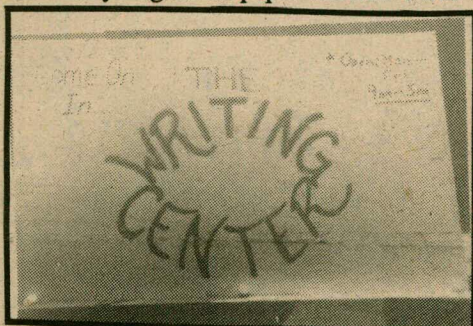 Come On
In
THE
WRITING
CENTER
* Open: Mon-
Fri
9am-5pm